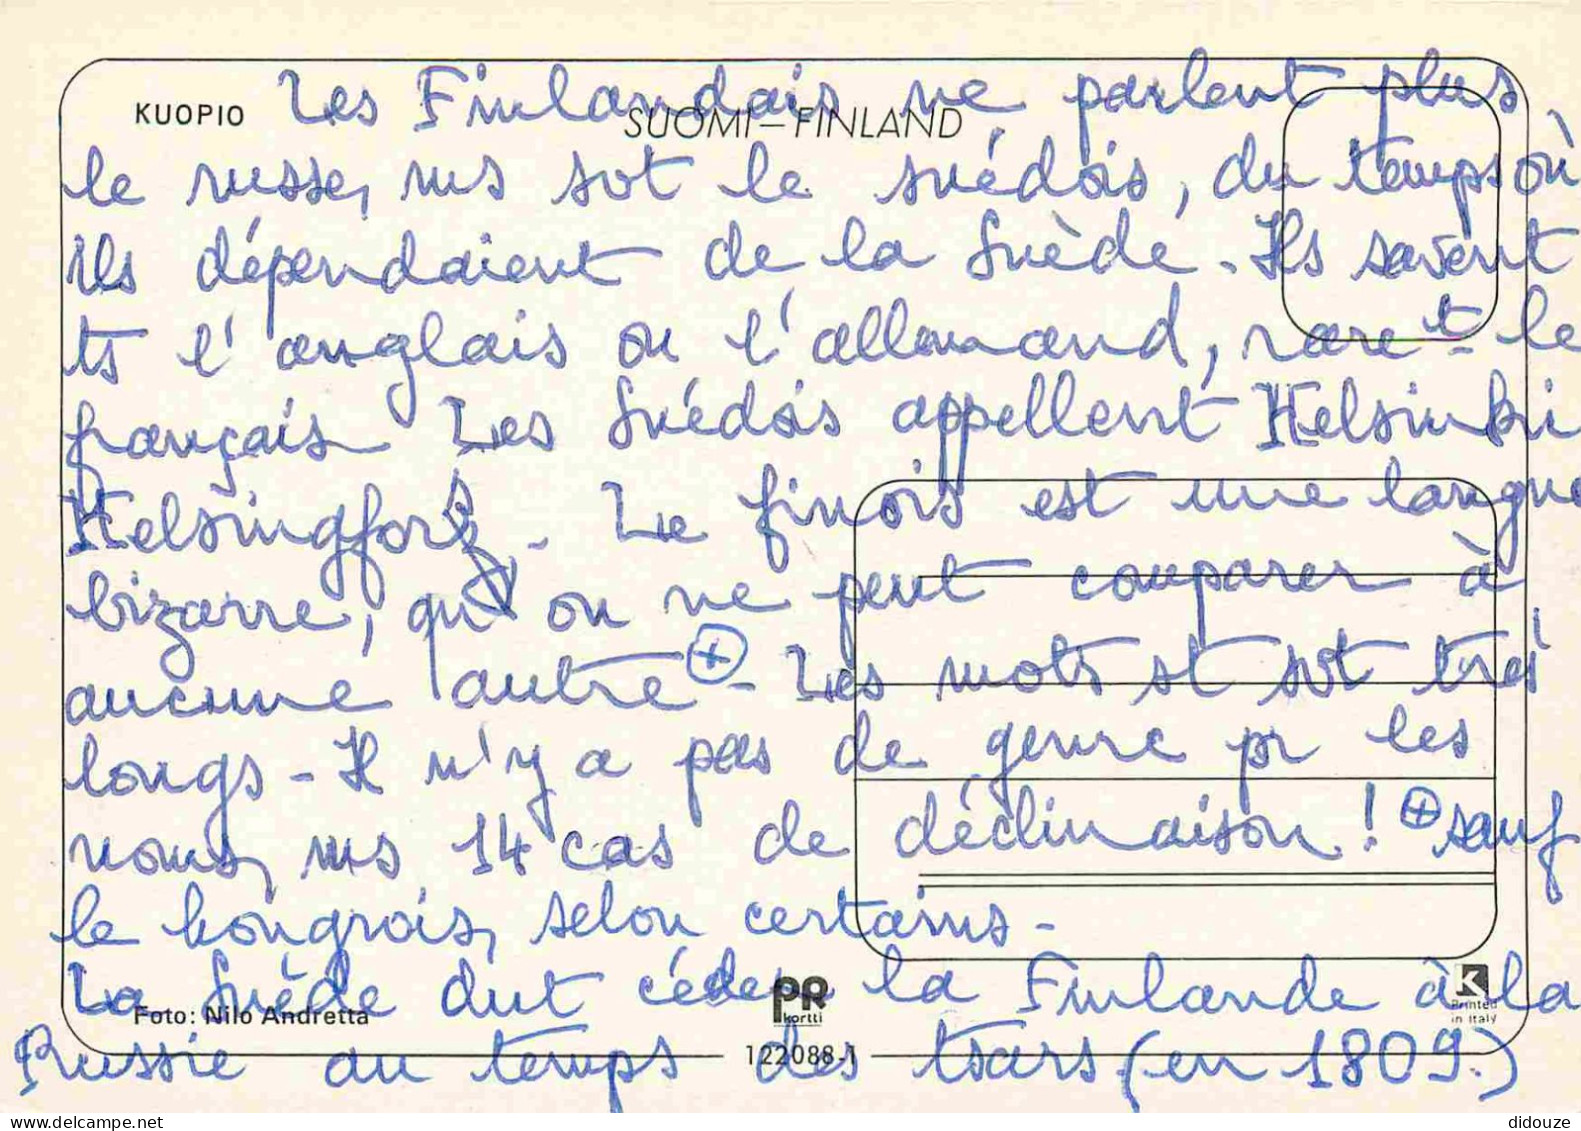 KUOPIO
SUOMI – FINLAND
Les Finlandais ne parlent plus
le russe, ms sot le suédois, du temps où
ils dépendaient de la Suède. Ils savent
ts l'anglais ou l'allemand, raret le
français Les Suédois appellent Helsinki
Helsingfors. Le finois est une langue
bizarre, qu'on ne peut comparer à
aucune autre ⊕ - Les mots st sot très
longs - Il n'y a pas de genre pr les
noms, ms 14 cas de déclinaison ! ⊕ sauf
le hongrois, selon certains -
La Suède dut céder la Finlande à la
Russie au temps des tsars (en 1809.)
Foto: Nilo Andretta
PR
kortti
122088-1
K
Printed
in Italy
didouze